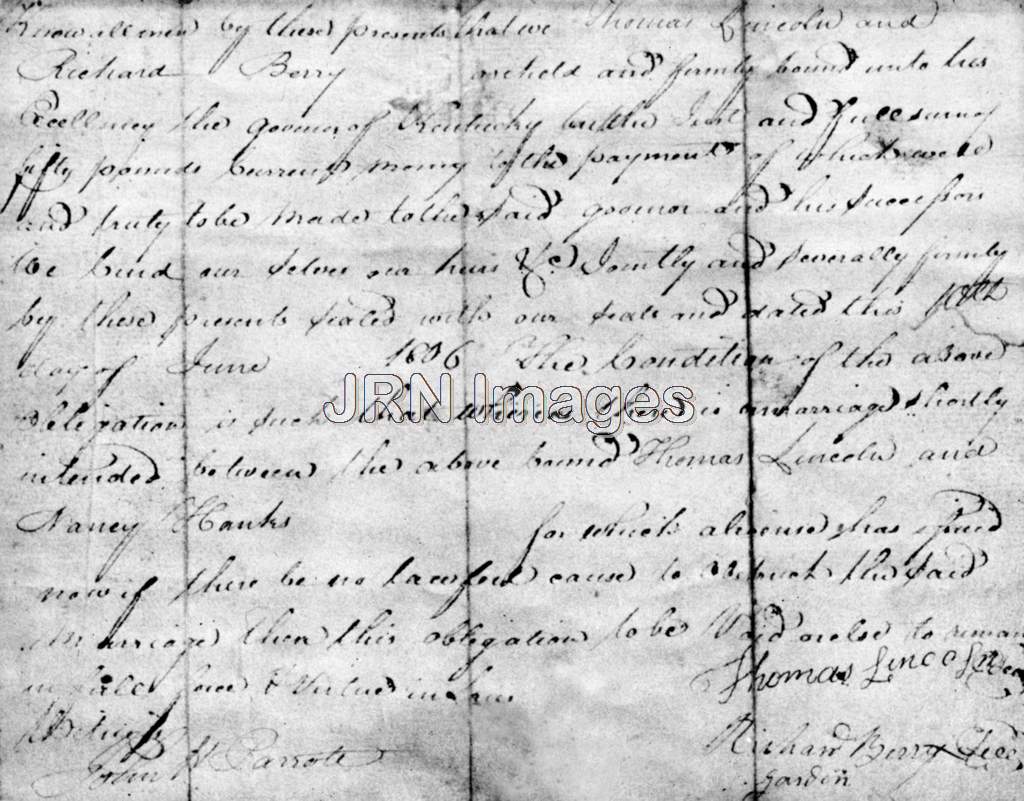 Know all men by these presents that we Thomas Lincoln and
Richard Berry are held and firmly bound unto his
Excellency the governor of Kentucky in the Just and full sum of
fifty pounds Current money to the payment of which well
and truly to be made to the said governor and his successors
We bind our selves our heirs &c Jointly and severally firmly
by these presents sealed with our seals and dated this 10th
day of June 1806 The Condition of the above
obligation is such that whereas there is a marriage shortly
intended between the above bound Thomas Lincoln and
Nancy Hanks for which a license has issued
now if there be no lawful cause to obstruct the said
marriage then this obligation to be Void or else to remain
in full force & Virtue in Law
Thomas Lincoln
Richard Berry
garden
Witness
John H Parrott
JRN Images